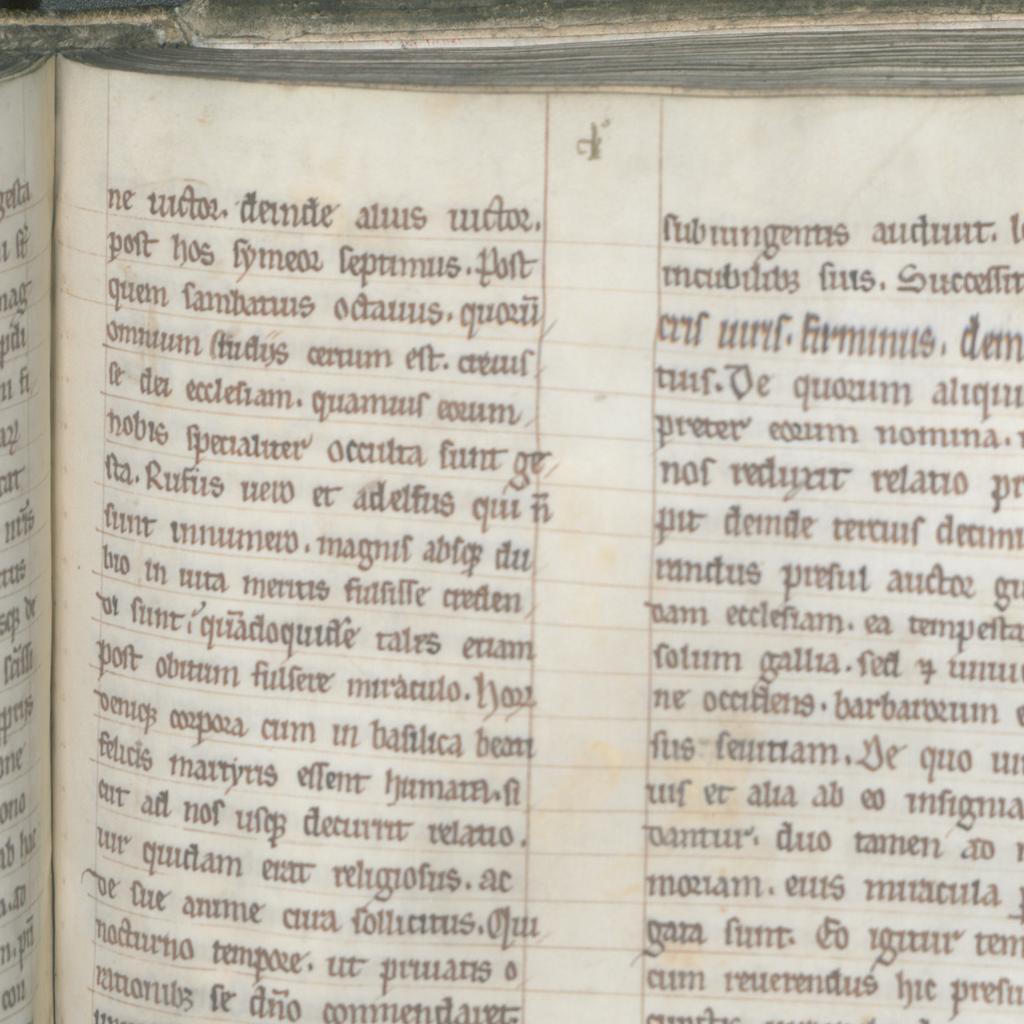 ne uictor. deinde alius uictor.
post hos symeor septimus. Post
quem sambatius octauus. quorū
omnium studiis certum est. creuis
se dei ecclesiam. quamuis eorum
nobis specialiter occulta sunt ge
sta. Rufus uero et adelfus qui n̄
sunt innumero. magnis absq; du
bio in uita meritis fulsisse creden
di sunt; quādoquidē tales etiam
post obitum fulsere miraculo. Horū
deniq; corpora cum in basilica beati
felicis martyris essent humata. si
cut ad nos usq; decurrit relatio.
uir quidam erat religiosus. ac
de sue anime cura sollicitus. Qui
nocturno tempore. ut priuatis o
rationib; se dn̄o commendaret.
subiungentis audiunt.
incubilib; suis. Successit
cris uiris. firminus. dein
tius. De quorum aliqui
preter eorum nomina.
nos reduxit relatio
pit deinde tercius decim
randus presul auctor
dam ecclesiam. ea tempesta
solum gallia. sed ⁊
ne occidens. barbarorum
sus seuitiam. De quo
uis et alia ab eo insignia
dantur. duo tamen ad
moriam. eius miracula
gata sunt. Eo igitur tem
cum reuerendus hic presu